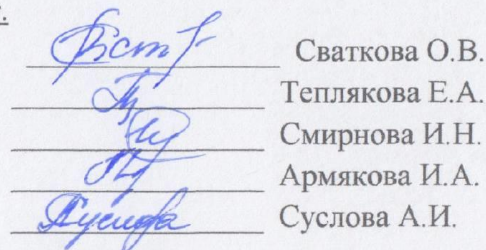 г.
Сваткова О.В.
Теплякова Е.А.
Смирнова И.Н.
Армякова И.А.
Суслова А.И.